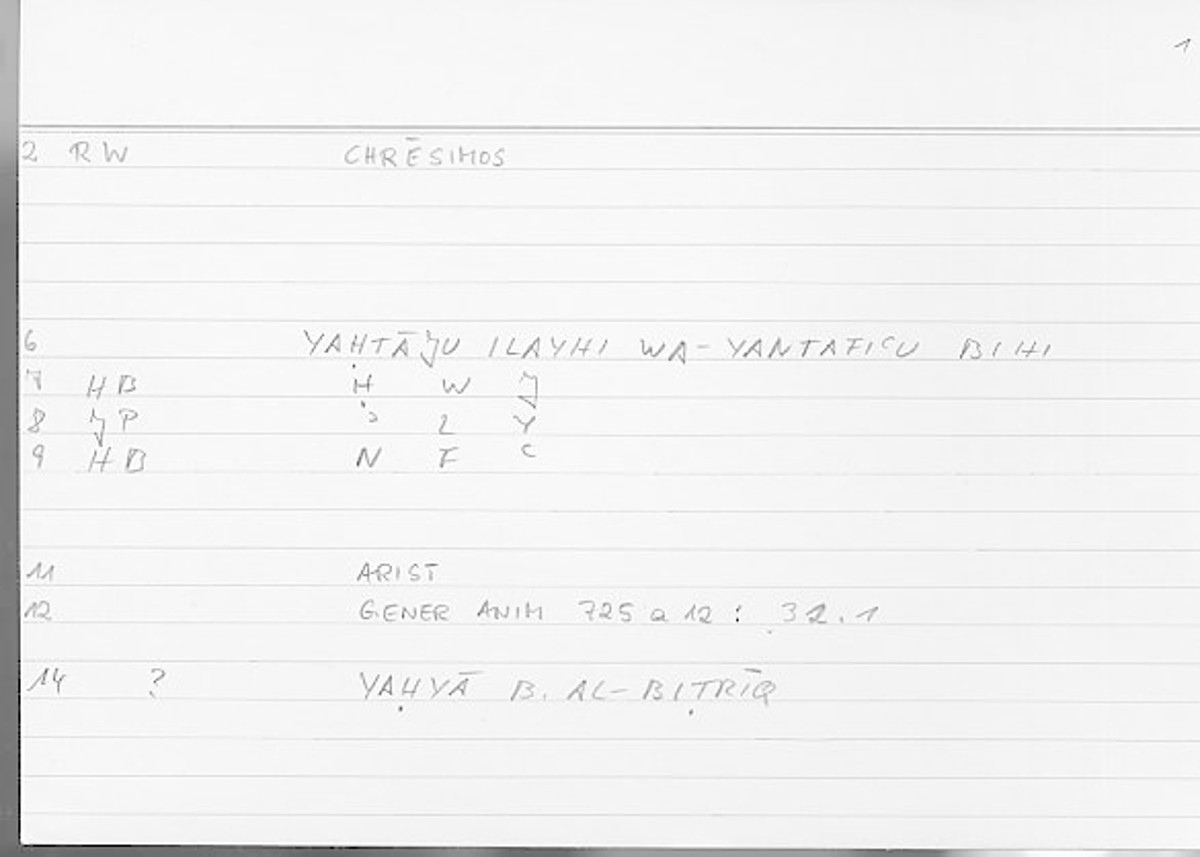 1
2 RW CHRĒSIMOS
6 YAḤTĀǦU ILAYHI WA-YANTAFIʿU BIHI
7 HB Ḥ W Ǧ
8 ǦP ʾ L Y
9 HB N F ʿ
11 ARIST
12 GENER ANIM 725 a 12 : 32.1
14 ? YAḤYĀ B. AL-BIṬRĪQ